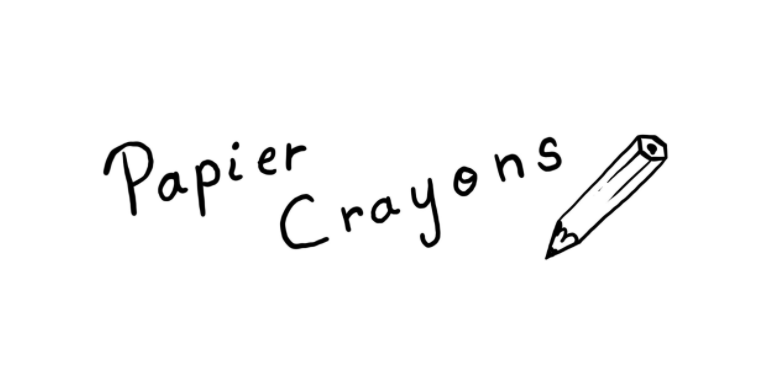 Papier
Crayons